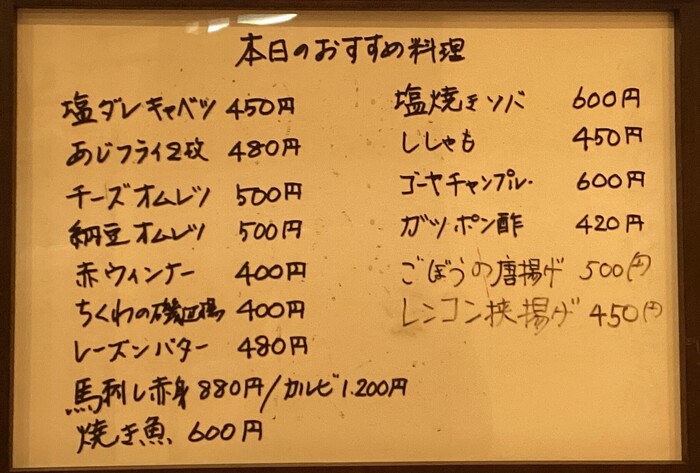 本日のおすすめ料理
塩ダレキャベツ 450円
あじフライ2枚 480円
チーズオムレツ 500円
納豆オムレツ 500円
赤ウィンナー 400円
ちくわの磯辺揚 400円
レーズンバター 480円
馬刺し赤身 880円/カルビ1.200円
焼き魚 600円
塩焼きソバ 600円
ししゃも 450円
ゴーヤチャンプルー 600円
ガツポン酢 420円
ごぼうの唐揚げ 500円
レンコン挟揚げ 450円